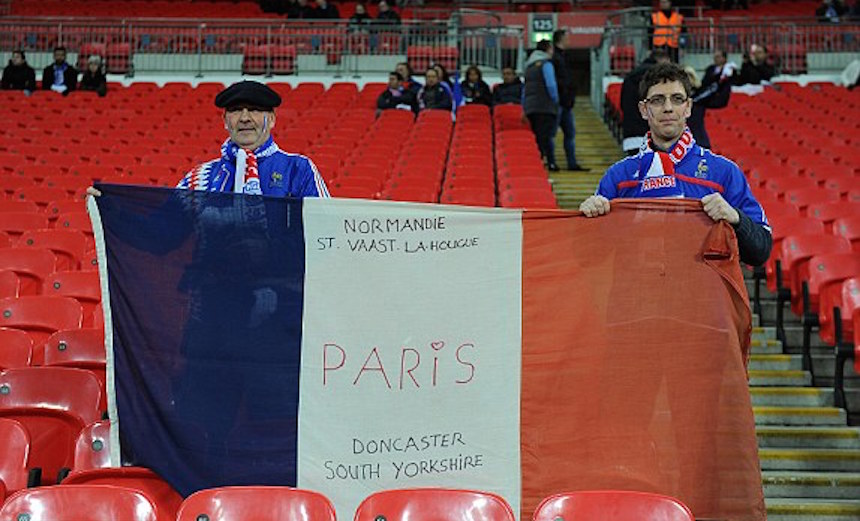 125
FRANCE
NORMANDIE
ST. VAAST. LA-HOUGUE
PARIS
DONCASTER
SOUTH YORKSHIRE